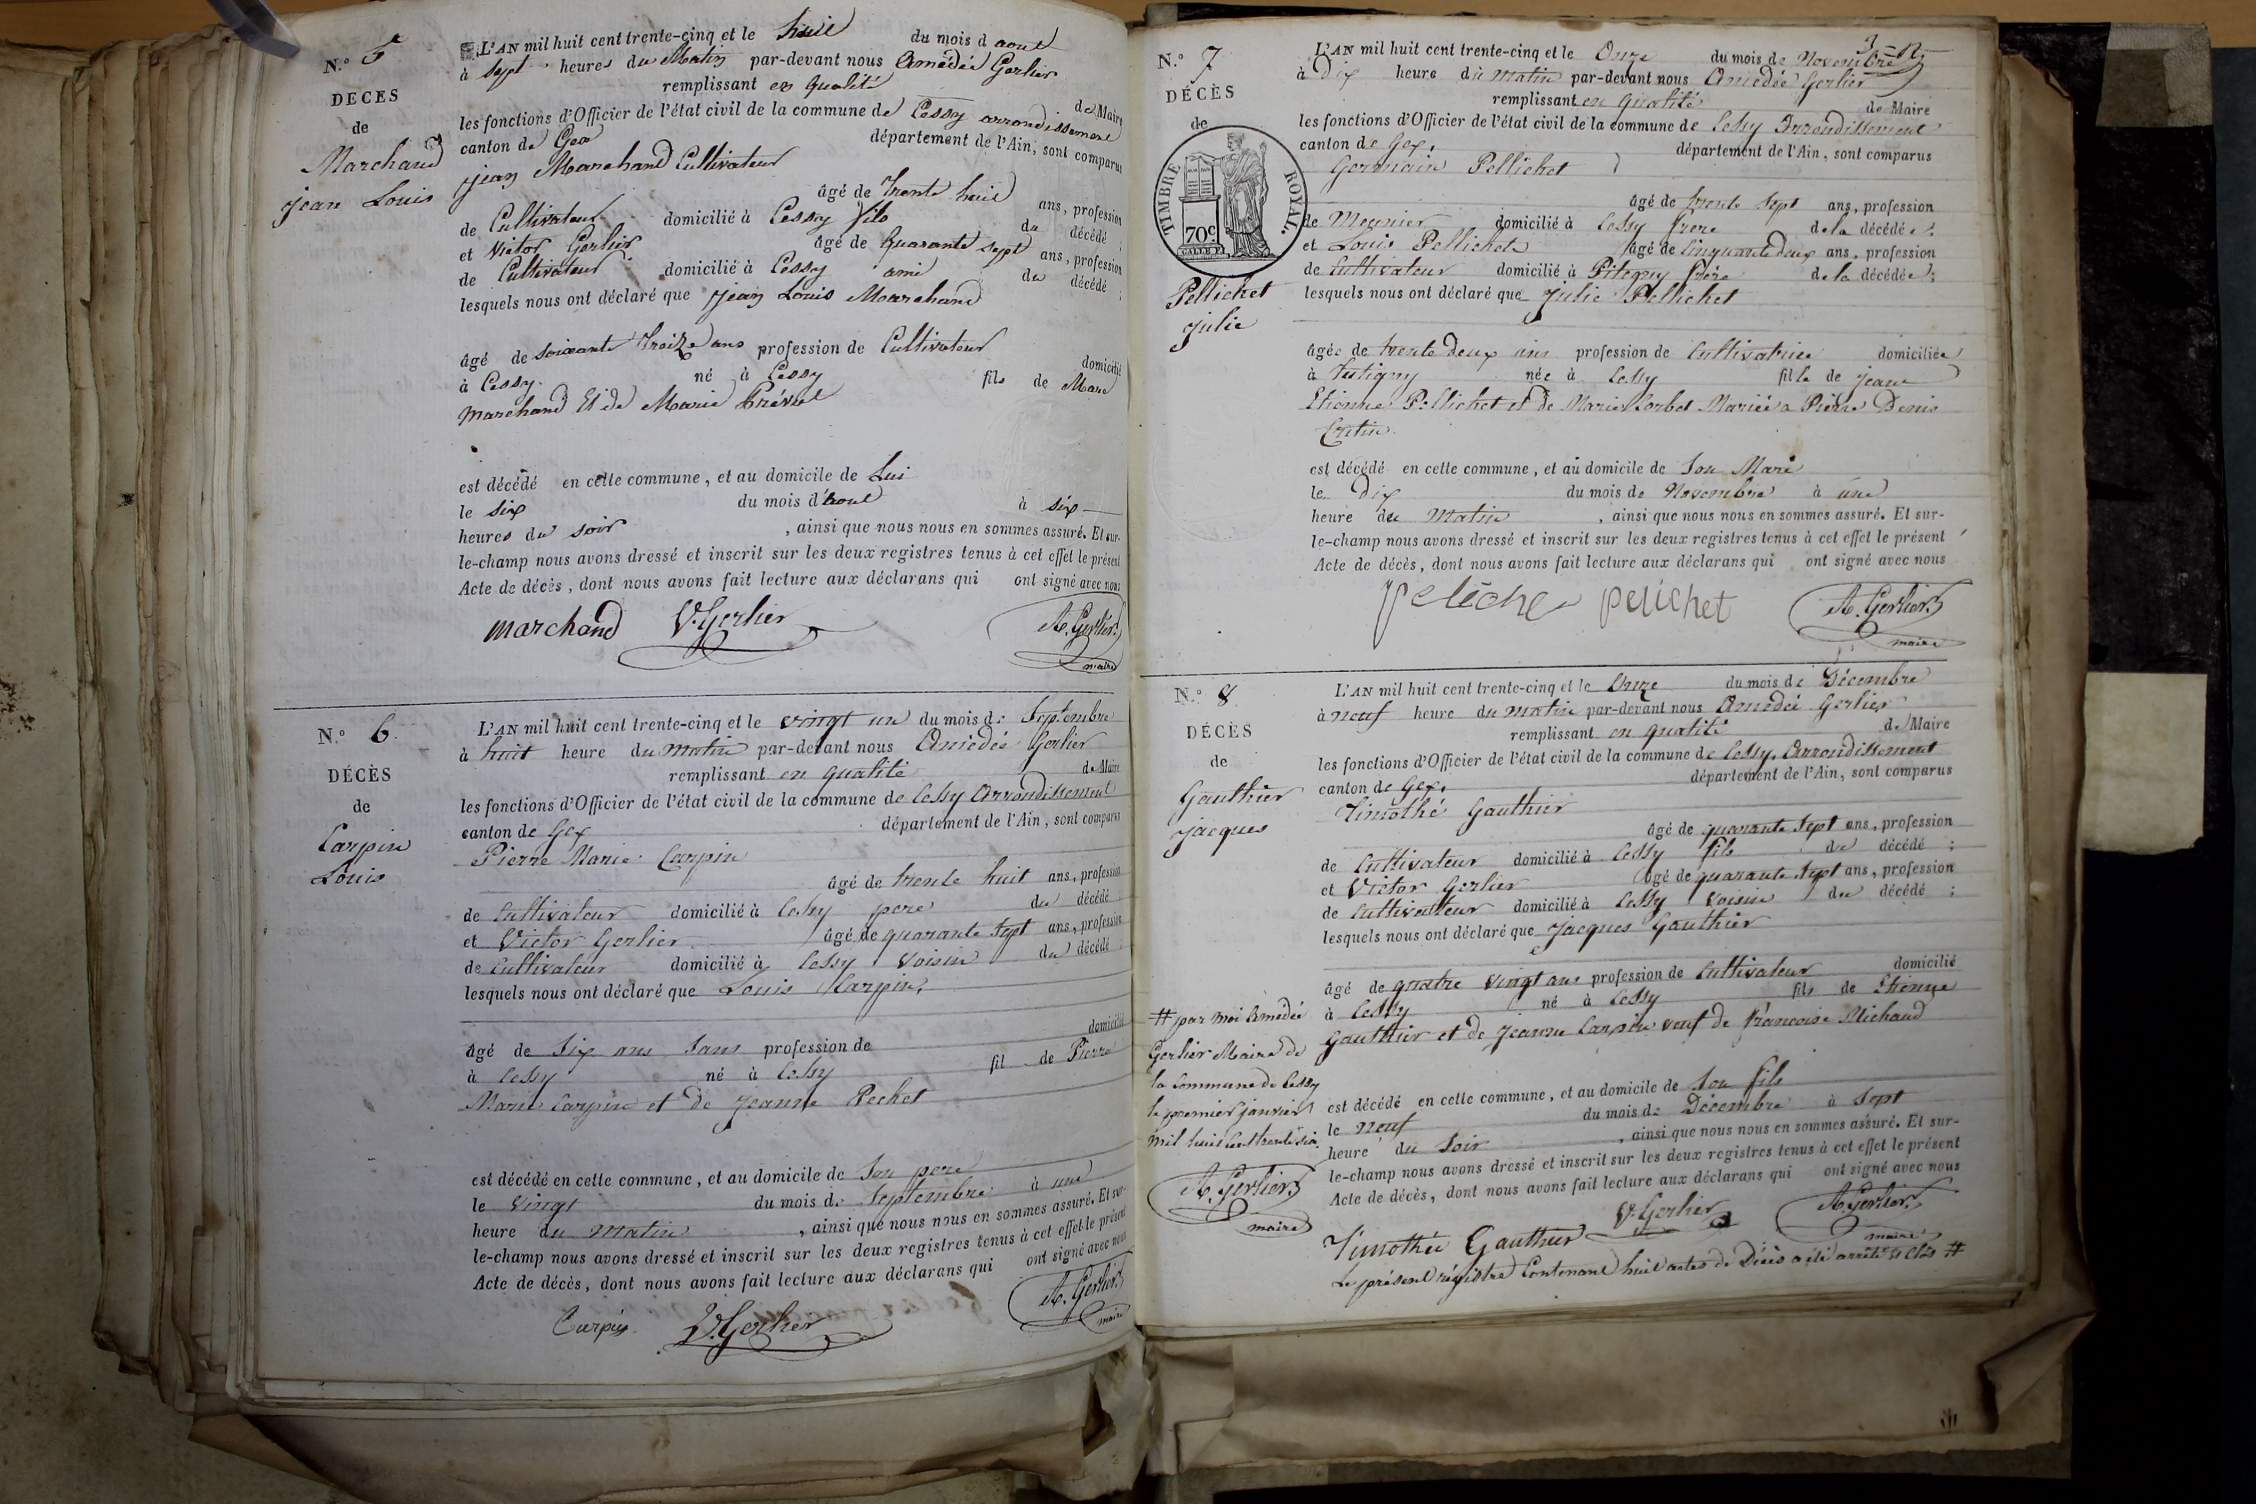 N.° 5
DÉCES
de
Marchand
jean Louis
L'AN mil huit cent trente-cinq et le huit du mois d aout
à sept heures du Matin par-devant nous Amédée Gerlier
remplissant en qualité de Maire
les fonctions d'Officier de l'état civil de la commune de Cessy arrondissement
canton de Gex département de l'Ain, sont comparus
jean Marchand Cultivateur
âgé de trente huit ans, profession
de Cultivateur domicilié à Cessy fils du décédé ;
et Victor Gerlier âgé de quarante sept ans, profession
de Cultivateur domicilié à Cessy ami du décédé ;
lesquels nous ont déclaré que jean Louis Marchand
âgé de soixante treize ans profession de Cultivateur domicilié
à Cessy né à Cessy fils de Marc
marchand Et de Marie Prévot
est décédé en cette commune, et au domicile de Lui
le six du mois d'aout à six
heures du soir , ainsi que nous nous en sommes assuré. Et sur-
le-champ nous avons dressé et inscrit sur les deux registres tenus à cet effet le présent
Acte de décès, dont nous avons fait lecture aux déclarans qui ont signé avec nous
marchand V. Gerlier A. Gerlier
maire
N.° 6.
DÉCÈS
de
Carpin
Louis
L'AN mil huit cent trente-cinq et le vingt un du mois de Septembre
à huit heure du matin par-devant nous Amédée Gerlier
remplissant en qualité de Maire
les fonctions d'Officier de l'état civil de la commune de Cessy Arrondissement
canton de Gex département de l'Ain, sont comparus
Pierre Marie Carpin
âgé de trente huit ans, profession
de Cultivateur domicilié à Cessy pere du décédé
et Victor Gerlier âgé de quarante sept ans, profession
de cultivateur domicilié à Cessy voisin du décédé
lesquels nous ont déclaré que Louis Carpin,
âgé de six ans sans profession de domicilié
à Cessy né à Cessy fil de Pierre
Marie Carpin et de jeanne Pechet
est décédé en cette commune, et au domicile de son pere
le vingt du mois de Septembre à une
heure du matin , ainsi que nous nous en sommes assuré. Et sur-
le-champ nous avons dressé et inscrit sur les deux registres tenus à cet effet le présent
Acte de décès, dont nous avons fait lecture aux déclarans qui ont signé avec nous
Carpin V. Gerlier A. Gerlier
maire
N.° 7
DÉCÈS
de
TIMBRE ROYAL.
70c
Pellichet
julie
L'AN mil huit cent trente-cinq et le Onze du mois de Novembre
à Dix heure du matin par-devant nous Amédée Gerlier
remplissant en qualité de Maire
les fonctions d'Officier de l'état civil de la commune de Cessy Arrondissement
canton de Gex, département de l'Ain, sont comparus
Germain Pellichet
âgé de trente sept ans, profession
de Meunier domicilié à Cessy frere de la décédée ;
et Louis Pellichet âgé de Cinquante deux ans, profession
de Cultivateur domicilié à Pitegny frère de la décédée ;
lesquels nous ont déclaré que julie Pellichet
âgée de trente deux ans profession de Cultivatrice domiciliée
à née à Cessy fille de jean
Etienne Pellichet et de Marie Sorbet Mariée a Pierre Denis
est décédé en cette commune, et au domicile de Son Mari
le dix du mois de Novembre à une
heure du Matin , ainsi que nous nous en sommes assuré. Et sur-
le-champ nous avons dressé et inscrit sur les deux registres tenus à cet effet le présent
Acte de décès, dont nous avons fait lecture aux déclarans qui ont signé avec nous
peliche pelichet A. Gerlier
maire
N.° 8
DÉCÈS
de
Gauthier
jacques
L'AN mil huit cent trente-cinq et le Onze du mois de Décembre
à neuf heure du matin par-devant nous Amédée Gerlier
remplissant en qualité de Maire
les fonctions d'Officier de l'état civil de la commune de Cessy, Arrondissement
canton de Gex, département de l'Ain, sont comparus
Timothé Gauthier
âgé de quarante sept ans, profession
de Cultivateur domicilié à Cessy fils du décédé ;
et Victor Gerlier âgé de quarante sept ans, profession
de Cultivateur domicilié à Cessy voisin du décédé ;
lesquels nous ont déclaré que jacques Gauthier
âgé de quatre vingt ans profession de Cultivateur domicilié
à Cessy né à Cessy fils de Etienne
Gauthier et de jeanne Carpin veuf de francoise Michaud
est décédé en cette commune, et au domicile de Son fils
le neuf du mois de Décembre à Sept
heure du Soir , ainsi que nous nous en sommes assuré. Et sur-
le-champ nous avons dressé et inscrit sur les deux registres tenus à cet effet le présent
Acte de décès, dont nous avons fait lecture aux déclarans qui ont signé avec nous
Timothée Gauthier V. Gerlier A. Gerlier
maire
Le présent régistre Contenant huit actes de Décès a été arrêté et clos #
# par moi Amédée
Gerlier Maire de
la Commune de Cessy
le premier janvier
mil huit cent trente six.
A. Gerlier
maire